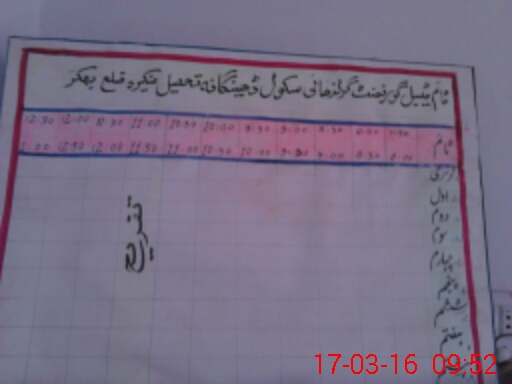 ٹائم ٹیبل گورنمنٹ گرلز ھائی سکول ڈھینگانہ تحصیل منکیرہ ضلع بھکر
ٹائم 8:00 8:30 9:00 9:30 10:00 10:30 11:00 12:00 12:30
8:00 8:30 9:00 9:30 10:00 10:30 11:00 11:30 12:00 12:30 1:00
نرسری
اول
دوم
سوم
چہارم
پنجم
ششم
ہفتم
تفریح
17-03-16 09:52